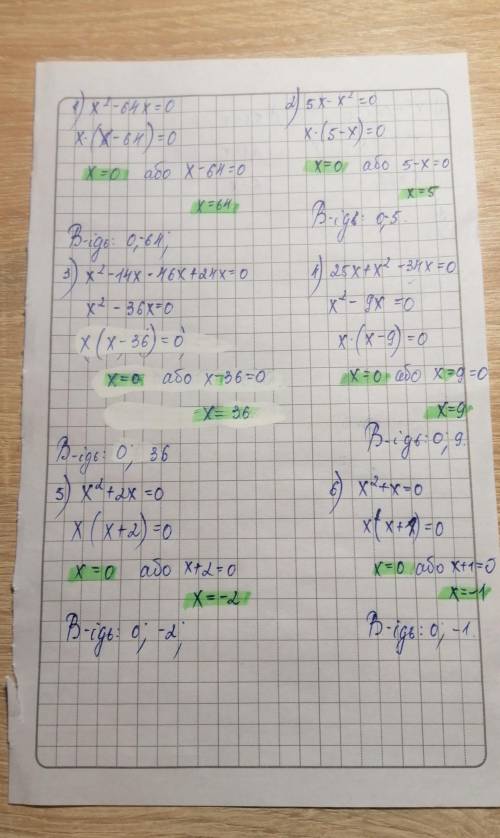 1) x²-64x=0
x·(x-64)=0
x=0 або x-64=0
x=64
В-ідь: 0,-64;
2) 5x-x²=0
x·(5-x)=0
x=0 або 5-x=0
x=5
В-ідь: 0,-5.
3) x²-14x-46x+24x=0
x²-36x=0
x(x-36)=0
x=0 або x-36=0
x=36
В-ідь: 0; 36
4) 25x+x²-34x=0
x²-9x=0
x·(x-9)=0
x=0 або x-9=0
x=9
В-ідь: 0; 9.
5) x²+2x=0
x(x+2)=0
x=0 або x+2=0
x=-2
В-ідь: 0; -2;
6) x²+x=0
x(x+1)=0
x=0 або x+1=0
x=-1
В-ідь: 0; -1.